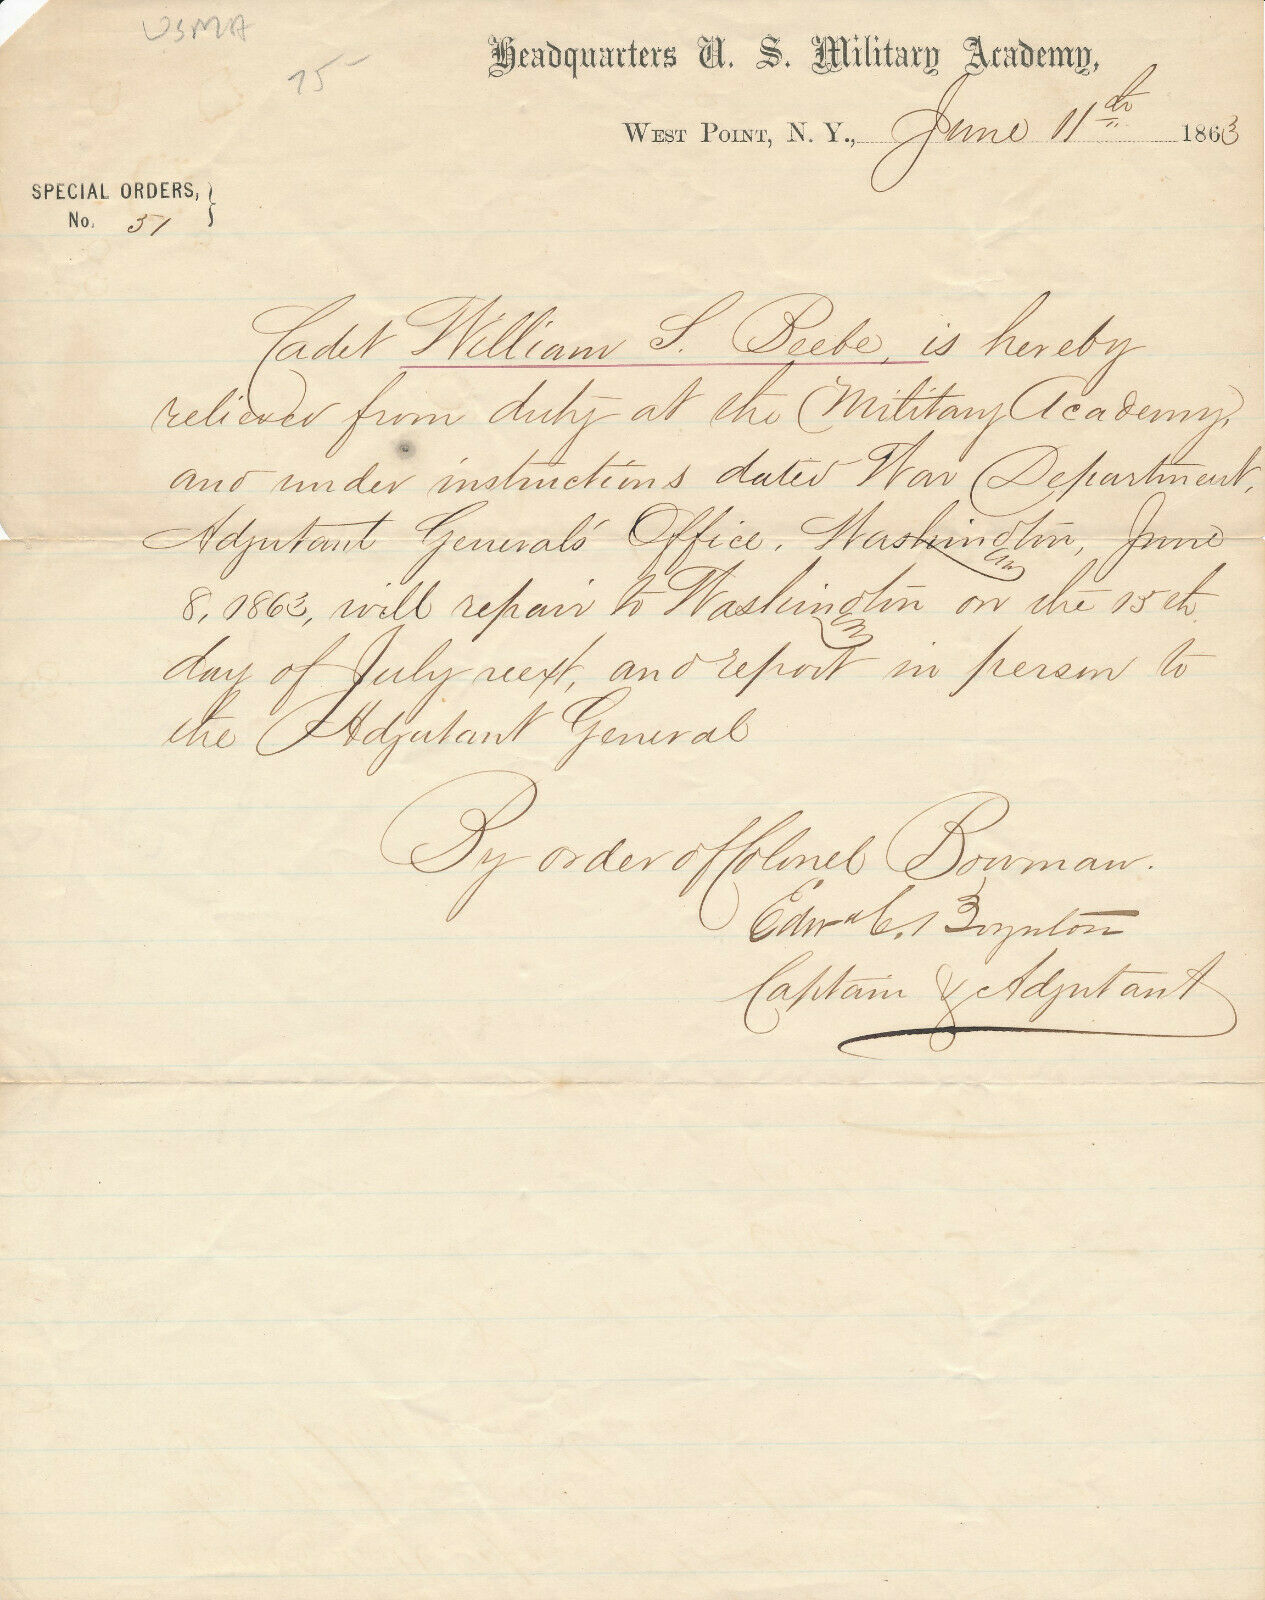 USMA
75-
Headquarters U. S. Military Academy,
West Point, N. Y., June 11th 1863
SPECIAL ORDERS,
No. 51
Cadet William S. Beebe, is hereby
relieved from duty at the Military Academy,
and under instructions dated War Department,
Adjutant General's Office, Washington, June
8, 1863, will repair to Washington on the 15th
day of July next, and report in person to
the Adjutant General
By order of Colonel Bowman.
Edwd C. Boynton
Captain & Adjutant